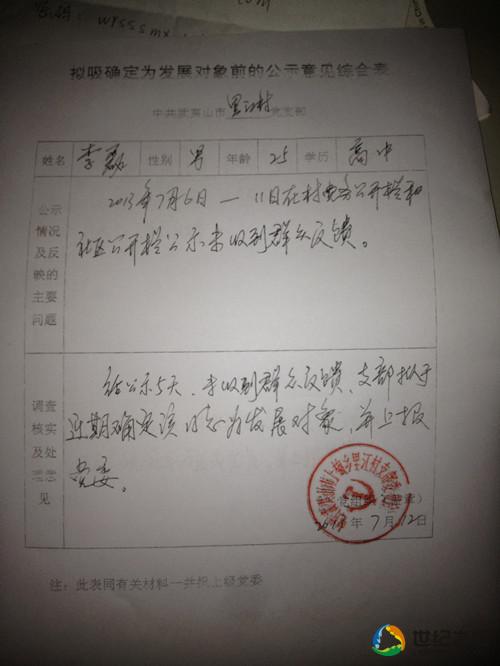 wrsssmx
拟吸确定为发展对象前的公示意见综合表
中共武夷山市里江村党支部
姓名 李磊 性别 男 年龄 25 学历 高中
公示情况及反映的主要问题
2013年7月6日—11日在村党务公开栏和
社区公开栏公示未收到群众反馈。
调查核实及处理意见
经公示5天,未收到群众反馈,支部拟于
近期确定该同志为发展对象,并上报
党委。
2013年7月12日
注:此表同有关材料一并报上级党委
世纪